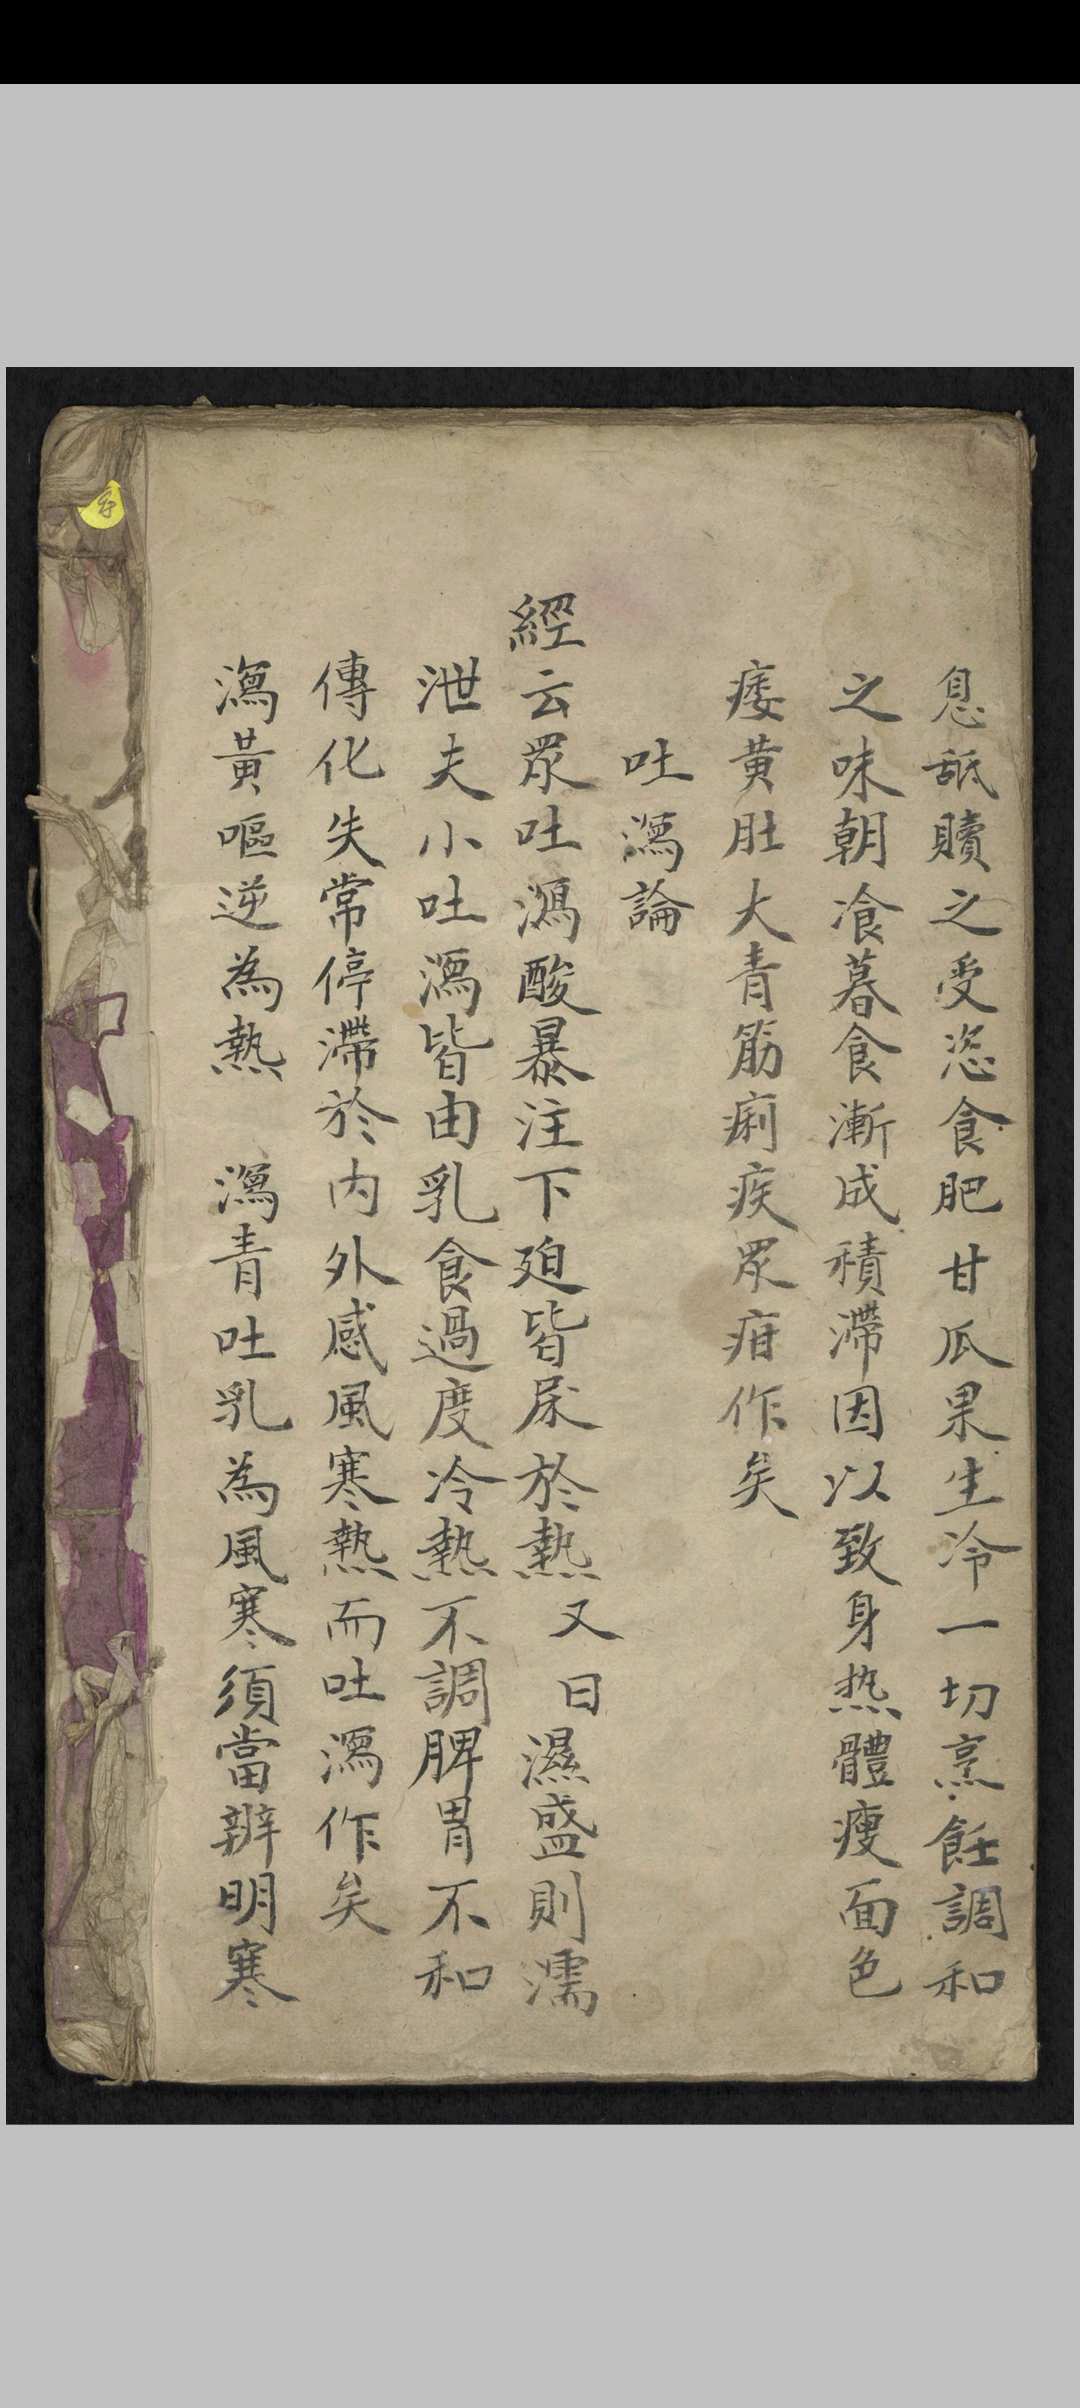 息舐贖之受恣食肥甘瓜果生冷一切烹飪調和
之味朝飡暮食漸成積滯因以致身热體瘦面色
痿黄肚大青筋痢疾眾疳作矣
吐瀉論
經云眾吐瀉酸暴注下廹皆尿於熱又曰濕盛則濡
泄夫小吐瀉皆由乳食過度冷熱不調脾胃不和
傳化失常停滯於内外感風寒熱而吐瀉作矣
瀉黃嘔逆為熱 瀉青吐乳為風寒須當辦明寒